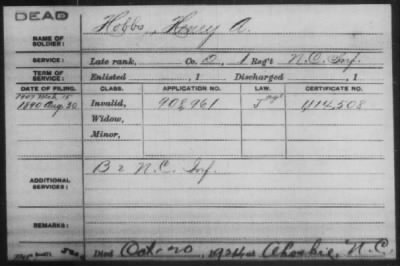 DEAD
NAME OF SOLDIER: Hobbs, Henry A.
SERVICE: Late rank, Co. D, 1 Reg't N.C. Inf.
TERM OF SERVICE: Enlisted , 1 Discharged , 1
DATE OF FILING. CLASS. APPLICATION NO. LAW. CERTIFICATE NO.
1890 Aug. 20 Invalid, 908,961 414,508
Widow,
Minor,
ADDITIONAL SERVICES: B 2 N.C. Inf.
REMARKS:
Died Oct. 20, 1924 at Ahoskie, N.C.